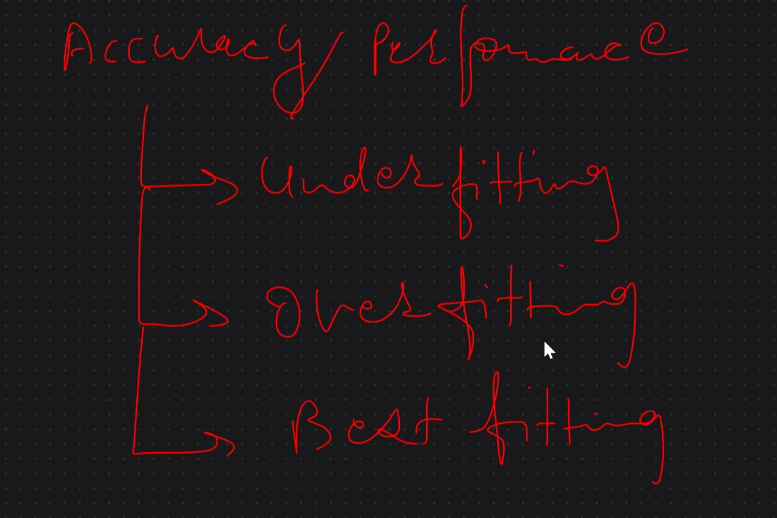 Accuracy/Performance
Underfitting
Overfitting
Best fitting